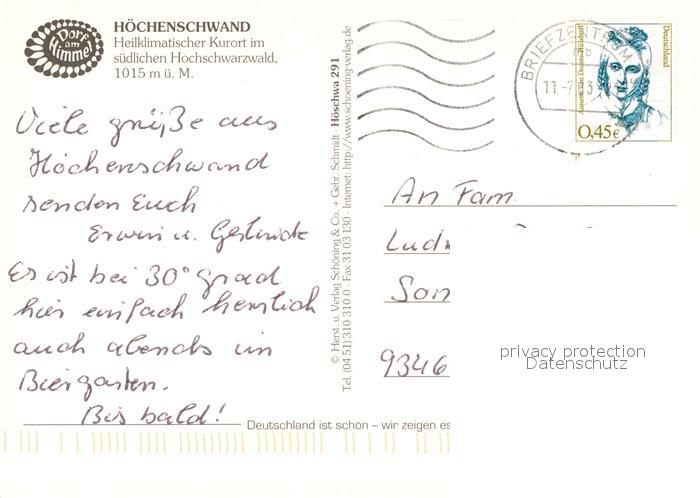 Dorf
am
Himmel
HÖCHENSCHWAND
Heilklimatischer Kurort im
südlichen Hochschwarzwald,
1015 m ü. M.
Viele grüße aus
Höchenschwand
senden Euch
Erwin u. Gertrude
Es ist bei 30° grad
hier einfach herrlich
auch abends im
Biergarten.
Bis bald!
© Herst. u. Verlag Schöning & Co. + Gebr. Schmidt · Höschwa 291
Tel. (04 51) 310 310 0 · Fax 31 03 130 · Internet: http://www.schoening-verlag.de
Deutschland ist schön – wir zeigen es
BRIEFZENTRUM
11.-7
Annette von Droste-Hülshoff
Deutschland
0,45€
An Fam.
Ludw
Son
9346
privacy protection
Datenschutz